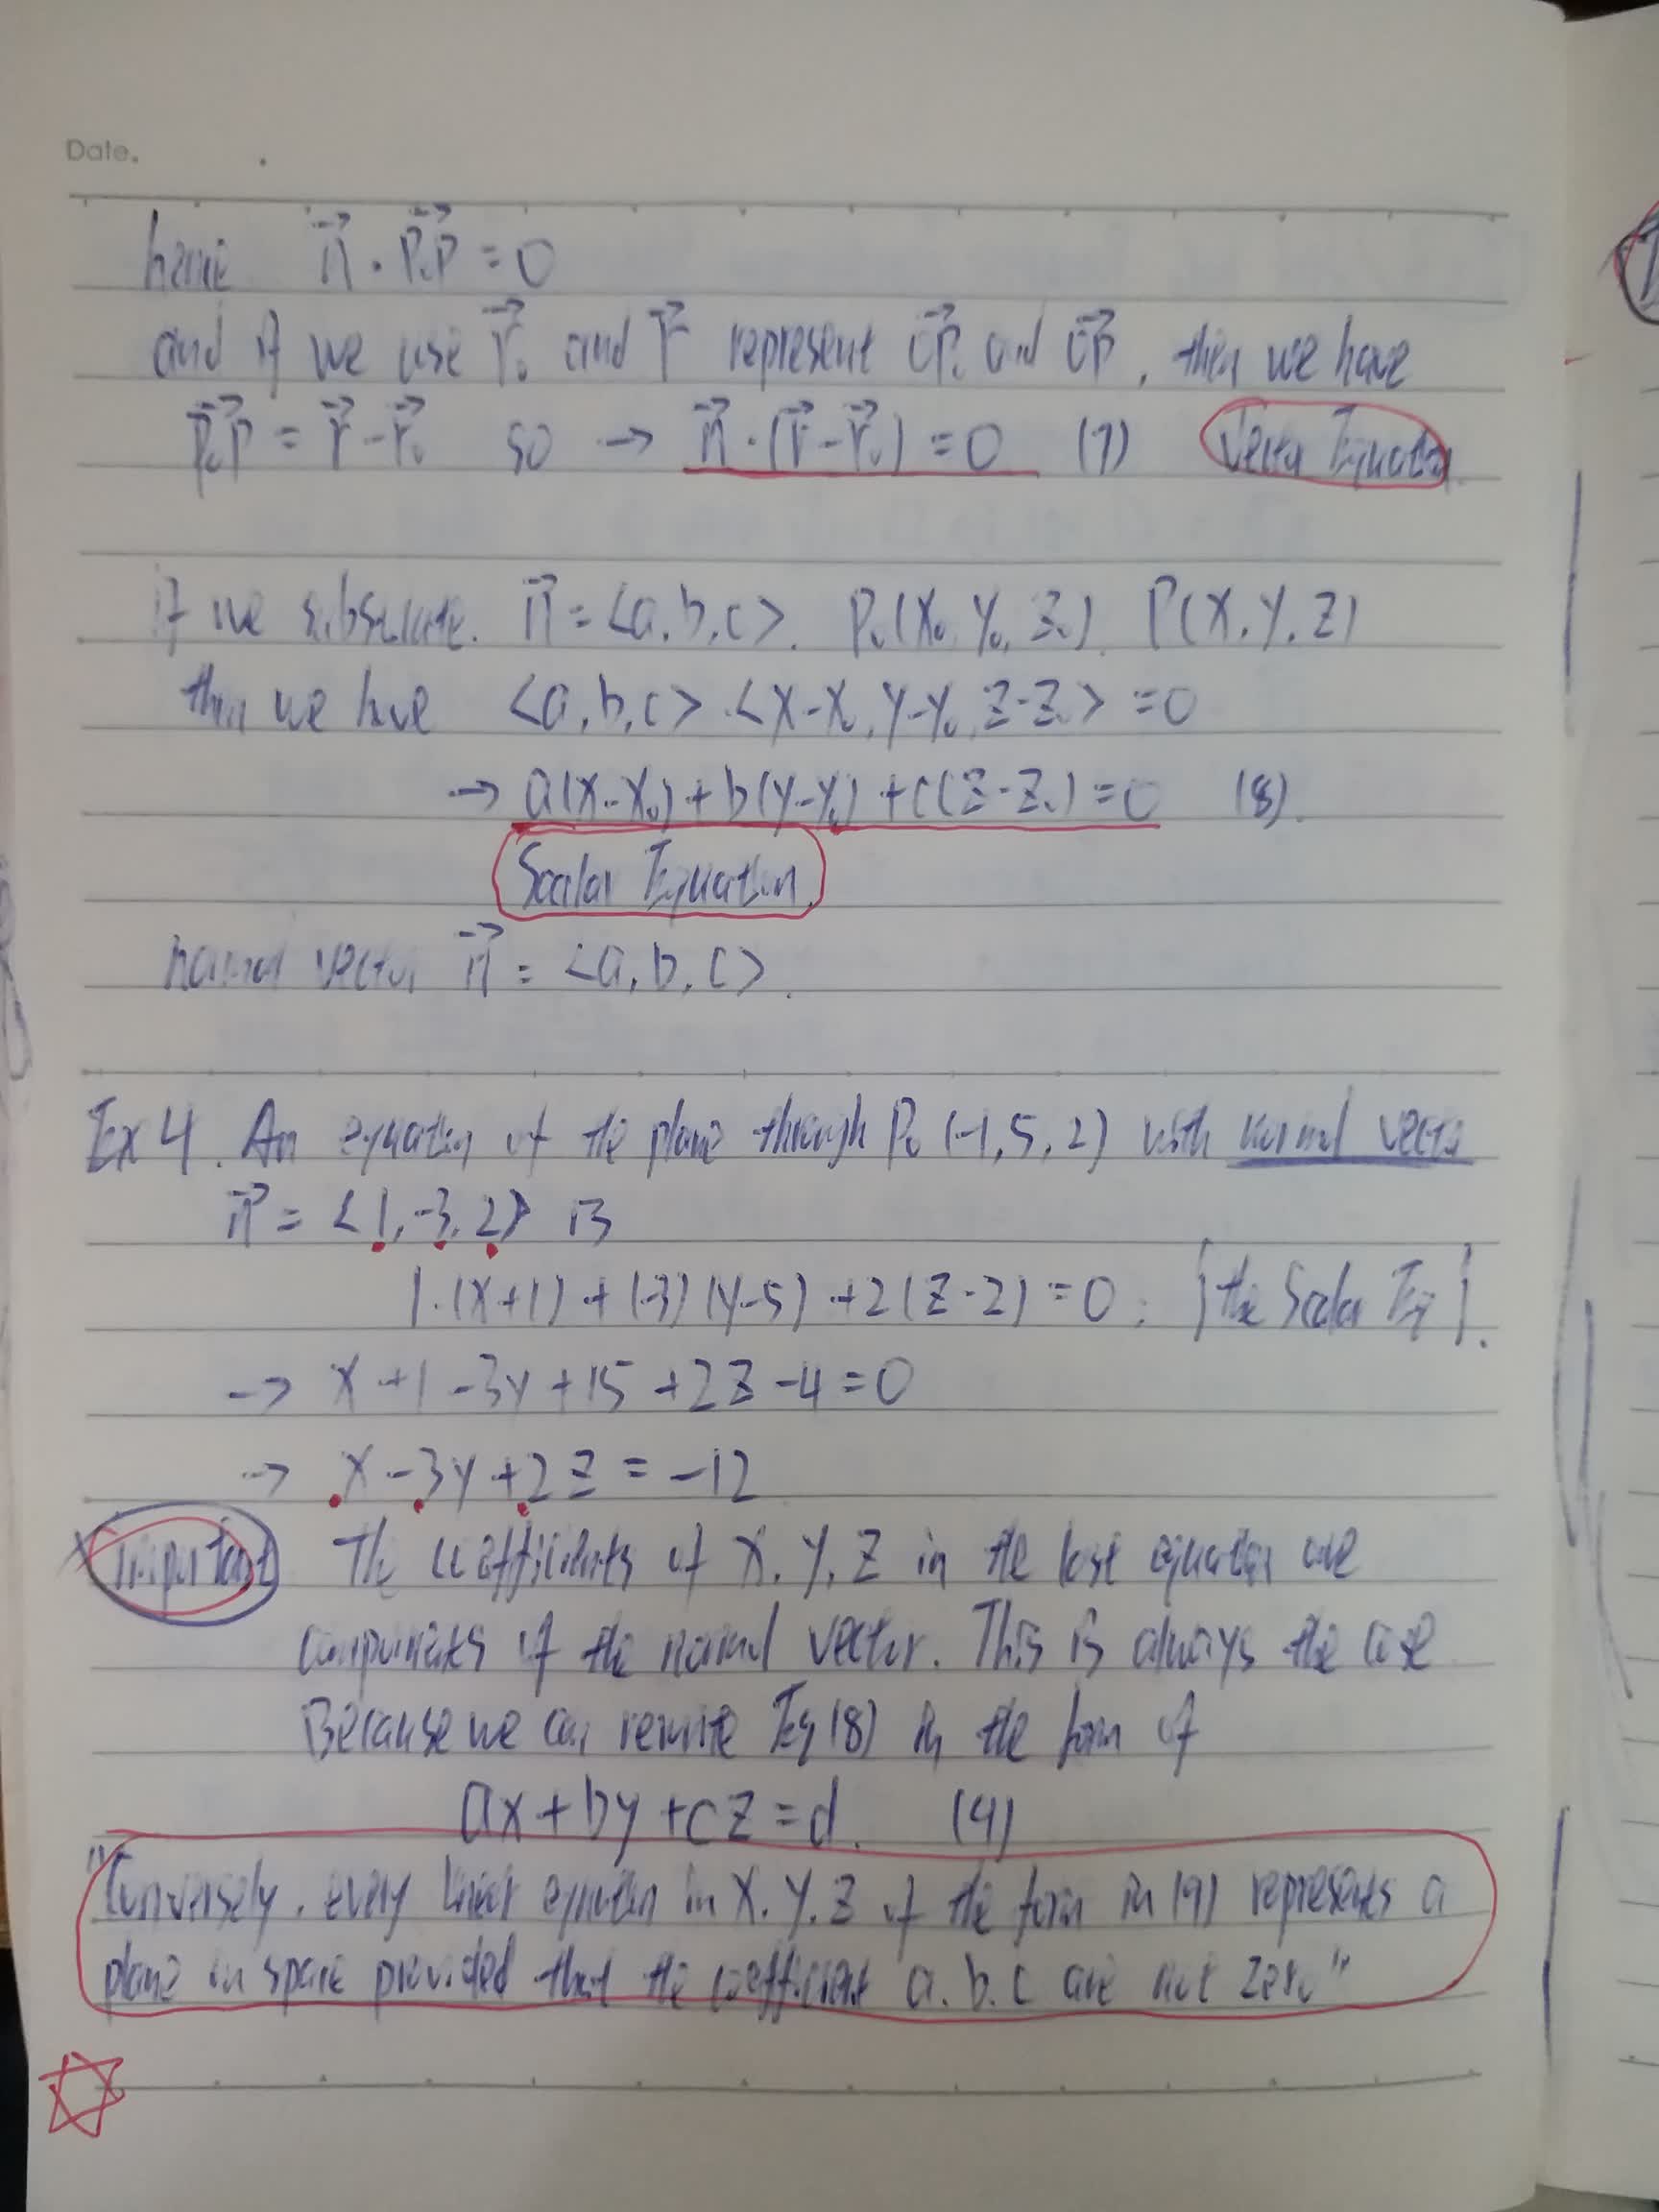 Date.
hence n⃗ · P₀P⃗ = 0
and if we use r⃗₀ and r⃗ represent OP⃗₀ and OP⃗, then we have
P₀P⃗ = r⃗ - r⃗₀ so → n⃗ · (r⃗ - r⃗₀) = 0 (7) Vector Equation.
if we n⃗ = <a, b, c>. P₀(x₀, y₀, z₀). P(x, y, z)
then we have <a, b, c> · <x-x₀, y-y₀, z-z₀> = 0
→ a(x-x₀) + b(y-y₀) + c(z-z₀) = 0 (8).
Scalar Equation.
normal vector n⃗ = <a, b, c>.
Ex 4. An equation of the plane through P₀ (-1, 5, 2) with normal vector
n⃗ = <1, -3, 2> is
1·(x+1) + (-3)(y-5) + 2(z-2) = 0. [the Scalar Eq].
→ x+1-3y+15+2z-4=0
→ x-3y+2z = -12
Important The coefficients of x, y, z in the last equation are
components of the normal vector. This is always the case
Because we can rewrite Eq (8) in the form of
ax+by+cz=d. (9)
"Conversely, every linear equation in x, y, z of the form in (9) represents a
plane in space provided that the coefficient a, b, c are not zero"